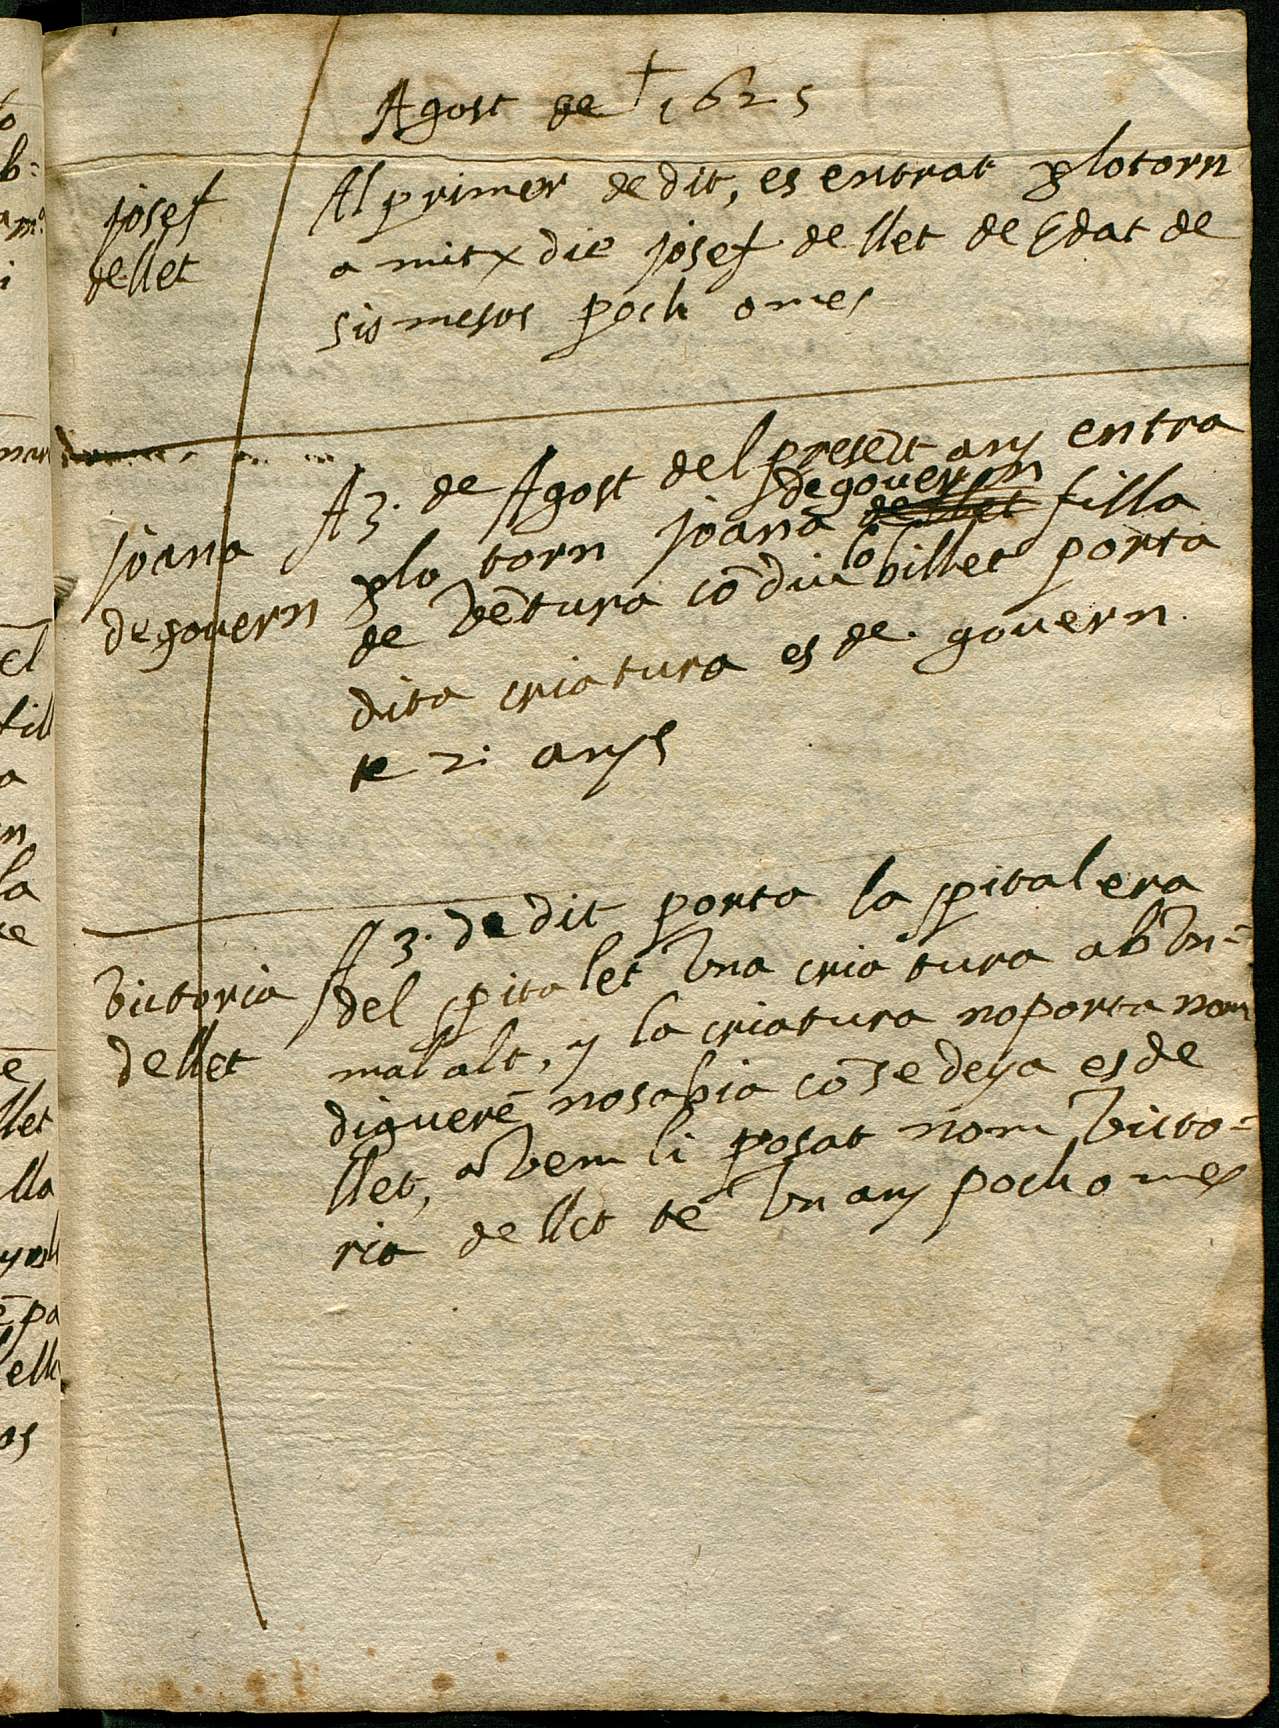 Agost de † 1625
josef
de llet
Al primer de dit, es entrat p lo torn
a mitx die josef de llet de Edat de
sis mesos poch o mes
joana
de govern
A 3. de Agost del presēt any entra
p lo torn joana de govern filla
de vētura cō diu lo billet porta
dita criatura es de govern
te 2. anys
Victoria
de llet
A 3. de dit porta la spitalera
del spitalet vna criatura ab vn=
malalt, y la criatura no porta nom
digueré no sabia cō se deya es de
llet, avem li posat nom Victo=
ria de llet té vn any poch o mes